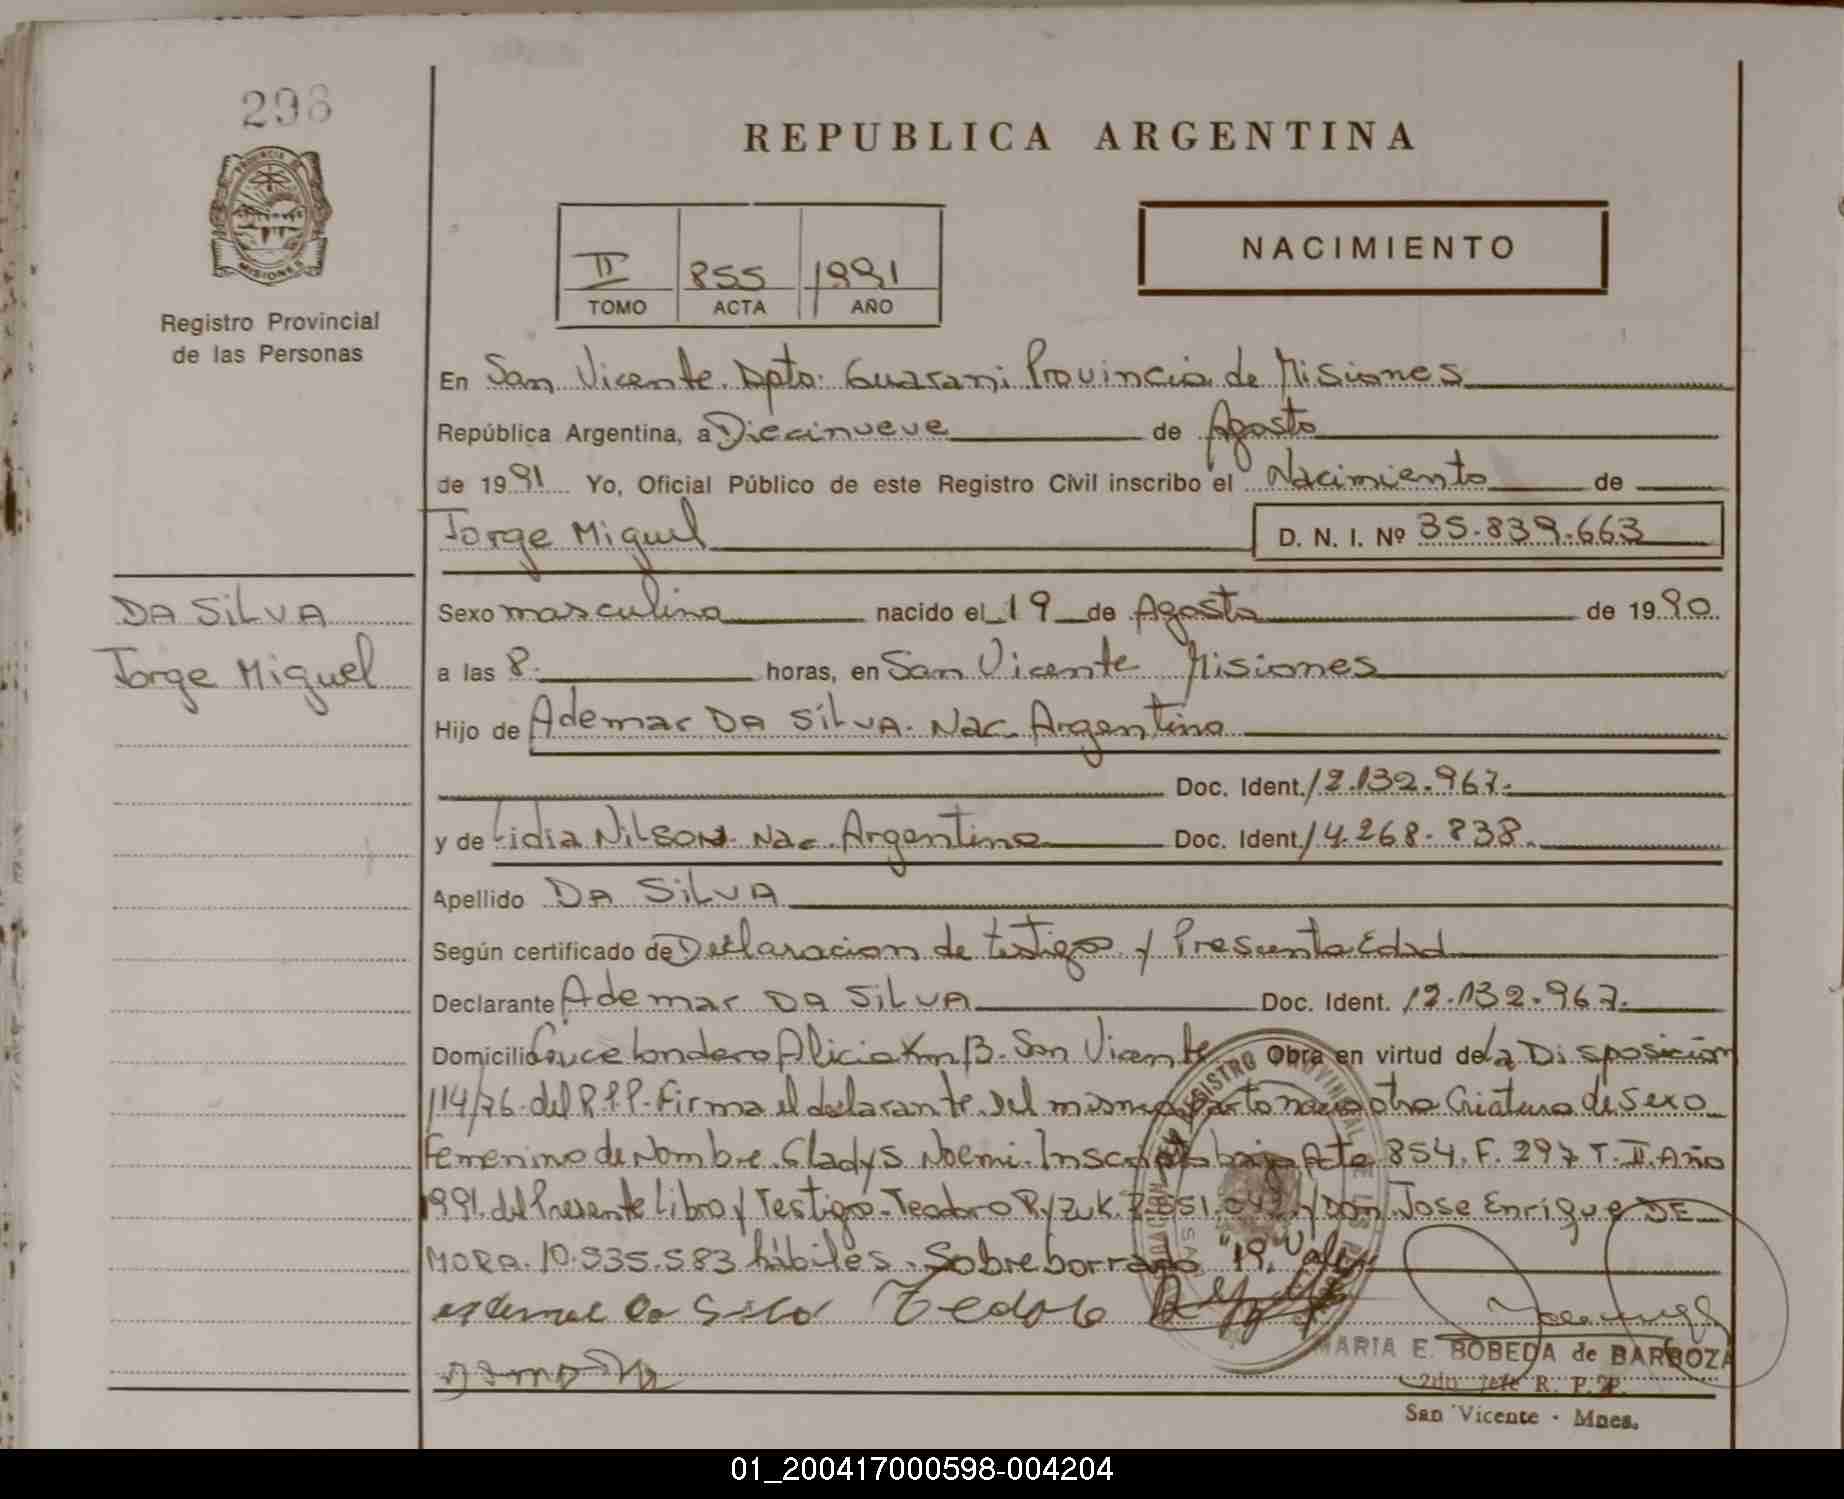 298
REPUBLICA ARGENTINA
PROVINCIA DE
MISIONES
Registro Provincial
de las Personas
II 855 1991
TOMO ACTA AÑO
NACIMIENTO
En San Vicente. Dpto. Guarani Provincia de Misiones
República Argentina, a Diecinueve de Agosto
de 1991 Yo, Oficial Público de este Registro Civil inscribo el Nacimiento de
Jorge Miguel D. N. I. Nº 35.839.663
DA SILVA
Jorge Miguel
Sexo masculino nacido el 19 de Agosto de 1990.
a las 8. horas, en San Vicente Misiones
Hijo de Ademar DA SILVA. Nac. Argentino
Doc. Ident. 12.132.967.
y de Lidia NILSON. Nac. Argentina Doc. Ident. 14.268.838.
Apellido DA SILVA
Según certificado de Declaracion de testigos y Presunta Edad
Declarante Ademar DA SILVA Doc. Ident. 12.132.967.
Domicilio Londero Alicia Km 13. San Vicente Obra en virtud de la Disposición
114/76 del R.P.P. Firma el declarante. Del mismo parto nacio otra Criatura de Sexo
Femenino de Nombre. Gladys Noemi. Inscripta bajo Acta 854. F. 297 T. II. Año
1991. del Presente Libro y Testigos. Teodoro RyZUK. y Don Jose Enrique DE
MORA. 10.535.583 hábiles. Sobreborrado "19" Vale
MARIA E. BOBEDA de BARBOZA
2do Jefe R. P. P.
San Vicente - Mnes.
01_200417000598-004204